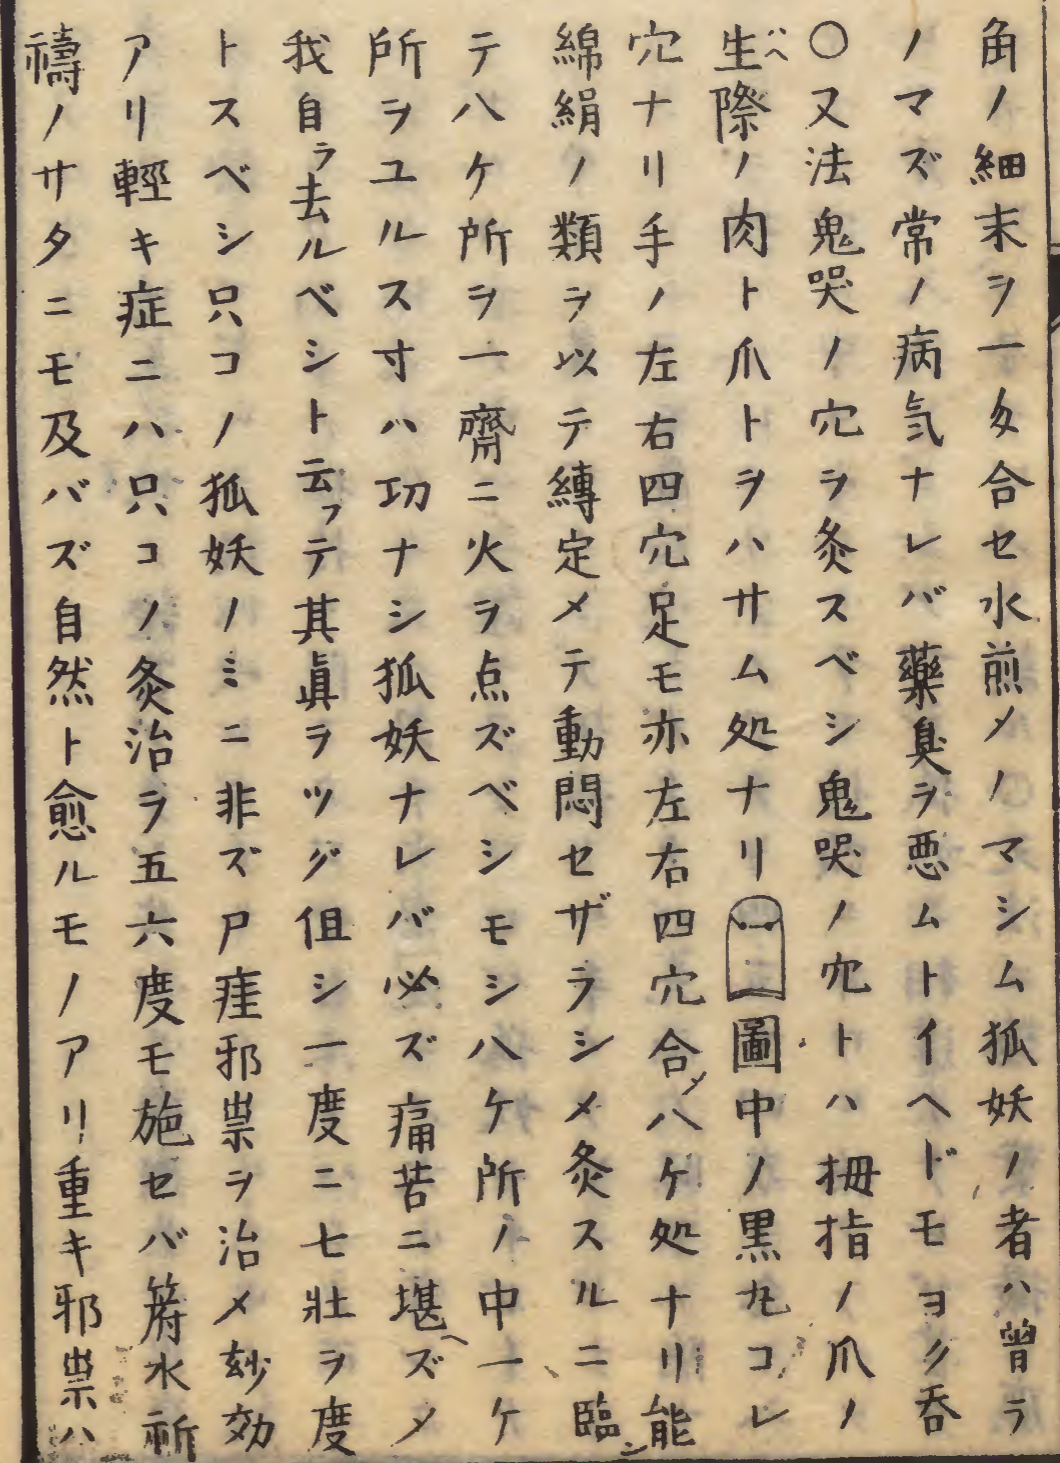 角ノ細末ヲ一匁合セ水煎メノマシム狐妖ノ者ハ曾ラ
ノマズ常ノ病気ナレバ藥臭ヲ悪ムトイヘドモヨク呑
〇又法鬼哭ノ穴ヲ灸スベシ鬼哭ノ穴トハ拇指ノ爪ノ
生ハヘ際ノ肉ト爪トヲハサム処ナリ圖中ノ黒丸コレ
穴ナリ手ノ左右四穴足モ亦左右四穴合メ八ケ処ナリ能
綿絹ノ類ヲ以テ縛定メテ動悶セザラシメ灸スルニ臨ン
テ八ケ所ヲ一齊ニ火ヲ点ズベシモシ八ケ所ノ中一ケ
所ヲユルス寸ハ功ナシ狐妖ナレバ必ズ痛苦ニ堪ヘズメ
我自ラ去ルベシト云フテ其眞ヲツグ但シ一度ニ七壯ヲ度
トスベシ只コノ狐妖ノミニ非ズ尸疰邪祟ヲ治メ玅効
アリ輕キ症ニハ只コノ灸治ヲ五六度モ施セバ符水祈
禱ノサタニモ及バズ自然ト愈ルモノアリ重キ邪祟ハ